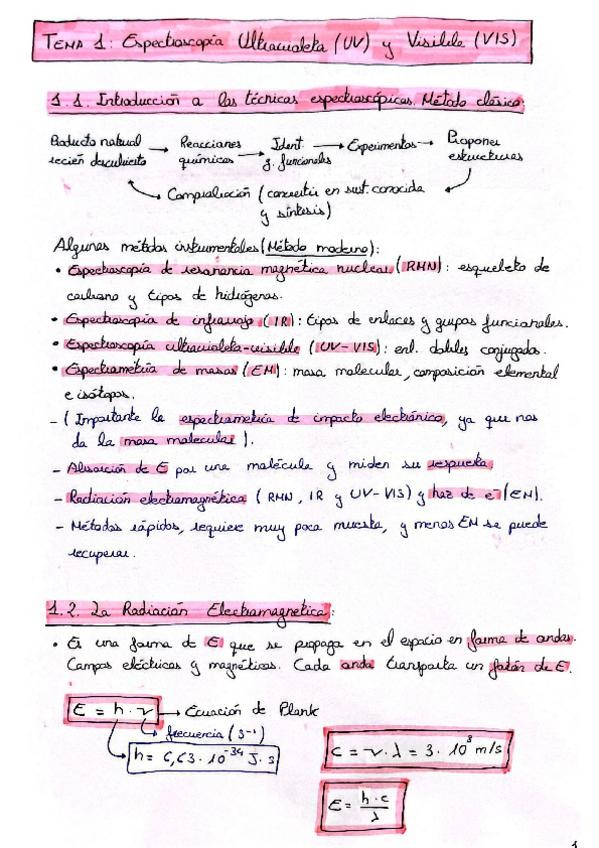 TEMA 1: Espectroscopía Ultravioleta (UV) y Visible (VIS)
1.1. Introducción a las técnicas espectroscópicas. Método clásico:
Producto natural recién descubierto → Reacciones químicas → Ident. g. funcionales → Experimentos → Proponer estructuras
Comprobación (convertir en sust. conocida
y síntesis)
Algunos métodos instrumentales (Método moderno):
• Espectroscopía de resonancia magnética nuclear (RMN): esqueleto de
carbono y tipos de hidrógenos.
• Espectroscopía de infrarrojo (IR): tipos de enlaces y grupos funcionales.
• Espectroscopía ultravioleta-visible (UV-VIS): enl. dobles conjugados.
• Espectrometría de masas (EM): masa molecular, composición elemental
e isótopos.
- (Importante la espectrometría de impacto electrónico, ya que nos
da la masa molecular).
- Absorción de E por una molécula y miden su respuesta.
- Radiación electromagnética (RMN, IR y UV-VIS) y haz de e⁻ (EM).
- Métodos rápidos, requiere muy poca muestra, y menos EM se puede
recuperar.
1.2. La Radiación Electromagnética:
• Es una forma de E que se propaga en el espacio en forma de ondas.
Campos eléctricos y magnéticos. Cada onda transporta un fotón de E.
E = h · ν → Ecuación de Plank
frecuencia (s⁻¹)
h = 6,63 · 10⁻³⁴ J · s
c = ν · λ = 3 · 10⁸ m/s
E = h · c / λ
1